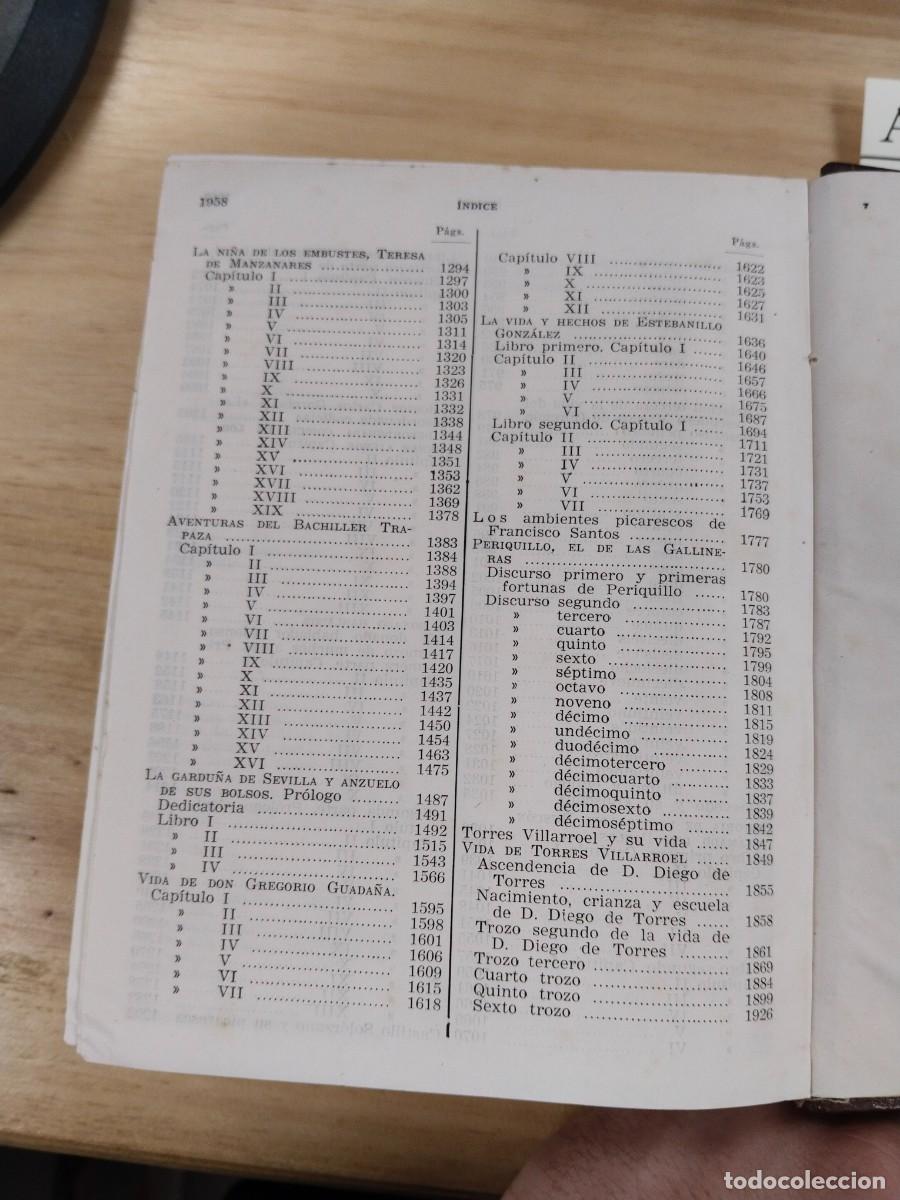 1958
ÍNDICE
Págs.
LA NIÑA DE LOS EMBUSTES, TERESA
DE MANZANARES .................... 1294
Capítulo I ............................ 1297
» II ............................ 1300
» III ............................ 1303
» IV ............................ 1305
» V ............................ 1311
» VI ............................ 1314
» VII ............................ 1320
» VIII ............................ 1323
» IX ............................ 1326
» X ............................ 1331
» XI ............................ 1332
» XII ............................ 1338
» XIII ............................ 1344
» XIV ............................ 1348
» XV ............................ 1351
» XVI ............................ 1353
» XVII ............................ 1362
» XVIII ............................ 1369
» XIX ............................ 1378
AVENTURAS DEL BACHILLER TRA-
PAZA ............................ 1383
Capítulo I ............................ 1384
» II ............................ 1388
» III ............................ 1394
» IV ............................ 1397
» V ............................ 1401
» VI ............................ 1403
» VII ............................ 1414
» VIII ............................ 1417
» IX ............................ 1420
» X ............................ 1435
» XI ............................ 1437
» XII ............................ 1442
» XIII ............................ 1450
» XIV ............................ 1454
» XV ............................ 1463
» XVI ............................ 1475
LA GARDUÑA DE SEVILLA Y ANZUELO
DE SUS BOLSOS. Prólogo ......... 1487
Dedicatoria ............................ 1491
Libro I ............................ 1492
» II ............................ 1515
» III ............................ 1543
» IV ............................ 1566
VIDA DE DON GREGORIO GUADAÑA.
Capítulo I ............................ 1595
» II ............................ 1598
» III ............................ 1601
» IV ............................ 1606
» V ............................ 1609
» VI ............................ 1615
» VII ............................ 1618
Págs.
Capítulo VIII ............................ 1622
» IX ............................ 1623
» X ............................ 1625
» XI ............................ 1627
» XII ............................ 1631
LA VIDA Y HECHOS DE ESTEBANILLO
GONZÁLEZ ............................ 1636
Libro primero. Capítulo I ...... 1640
Capítulo II ............................ 1646
» III ............................ 1657
» IV ............................ 1666
» V ............................ 1675
» VI ............................ 1687
Libro segundo. Capítulo I ...... 1694
Capítulo II ............................ 1711
» III ............................ 1721
» IV ............................ 1731
» V ............................ 1737
» VI ............................ 1753
» VII ............................ 1769
Los ambientes picarescos de
Francisco Santos .................. 1777
PERIQUILLO, EL DE LAS GALLINE-
RAS ............................ 1780
Discurso primero y primeras
fortunas de Periquillo ...... 1780
Discurso segundo .................. 1783
» tercero .................. 1787
» cuarto .................. 1792
» quinto .................. 1795
» sexto .................. 1799
» séptimo .................. 1804
» octavo .................. 1808
» noveno .................. 1811
» décimo .................. 1815
» undécimo .................. 1819
» duodécimo .................. 1824
» décimotercero ............ 1829
» décimocuarto ............ 1833
» décimoquinto ............ 1837
» décimosexto ............ 1839
» décimoséptimo ............ 1842
Torres Villarroel y su vida ...... 1847
VIDA DE TORRES VILLARROEL ...... 1849
Ascendencia de D. Diego de
Torres ............................ 1855
Nacimiento, crianza y escuela
de D. Diego de Torres ...... 1858
Trozo segundo de la vida de
D. Diego de Torres ......... 1861
Trozo tercero ..................... 1869
Cuarto trozo ..................... 1884
Quinto trozo ..................... 1899
Sexto trozo ..................... 1926
7
A
todocoleccion